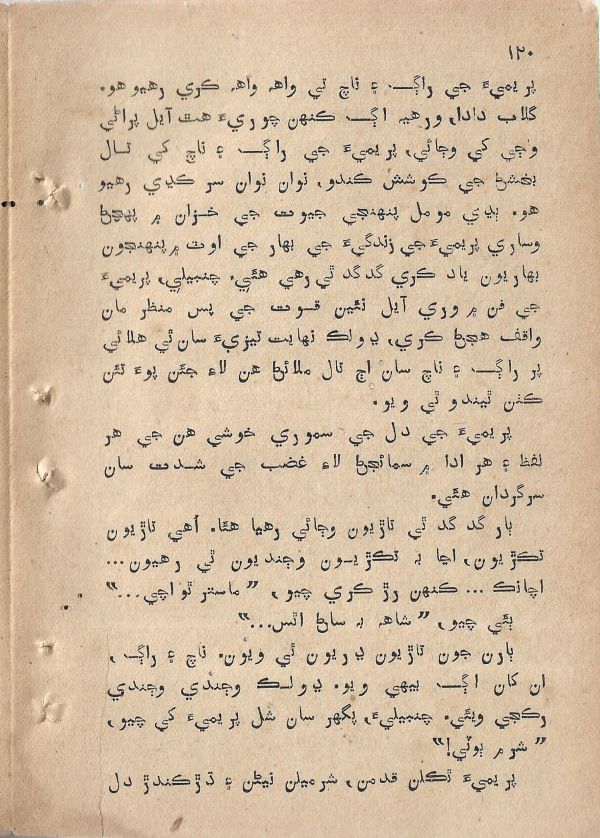 ۱۲۰
پريميءَ جي راڳ ۽ ناچ تي واهه واهه ڪري رهيو هو.
گلاب دادا، ورهيه اڳ ڪنهن چوريءَ هٿ آيل پراڻي
وڄي کي وڄائي، پريميءَ جي راڳ ۽ ناچ کي تال
بخشڻ جي ڪوشش ڪندو، نوان نوان سر ڪڍي رهيو
هو. ٻڍي مومل پنهنجي جيوت جي خزان ۾ پهچڻ
وساري پريميءَ جي زندگيءَ جي بهار جي اوٽ ۾ پنهنجون
بهاريون ياد ڪري گدگد ٿي رهي هئي. چنبيلي، پريميءَ
جي فن ۾ وري آيل نئين قوت جي پس منظر مان
واقف هجڻ ڪري، ڍولڪ نهايت تيزيءَ سان ٿي هلائي
پر راڳ ۽ ناچ سان اڄ تال ملائڻ هن لاءِ جٿن پوءِ تٿن
ڪٺن ٿيندو ٿي ويو.
پريميءَ جي دل جي سموري خوشي هن جي هر
لفظ ۽ هر ادا ۾ سمائجڻ لاءِ غضب جي شدت سان
سرگردان هئي.
ٻار گدگد ٿي تاڙيون وڄائي رهيا هئا. اُهي تاڙيون
تڪڙيون، اڃا به تڪڙيون وڄنديون ٿي رهيون...
اچانڪ ... ڪنهن رڙ ڪري چيو، ”ماستر ٿو اچي...”
ٻئي چيو، ”شاهه به ساڻ اٿس...”
ٻارن جون تاڙيون ڍريون ٿي ويون. ناچ ۽ راڳ،
ان کان اڳ بيهي ويو. ڍولڪ وڄندي وڄندي
رڪجي ويئي. چنبيليءَ، پگهر سان شل پريميءَ کي چيو،
”شرم ٻوٽي!”
پريميءَ ٿڪلن قدمن، شرميلن نيڻن ۽ ڌڙڪندڙ دل